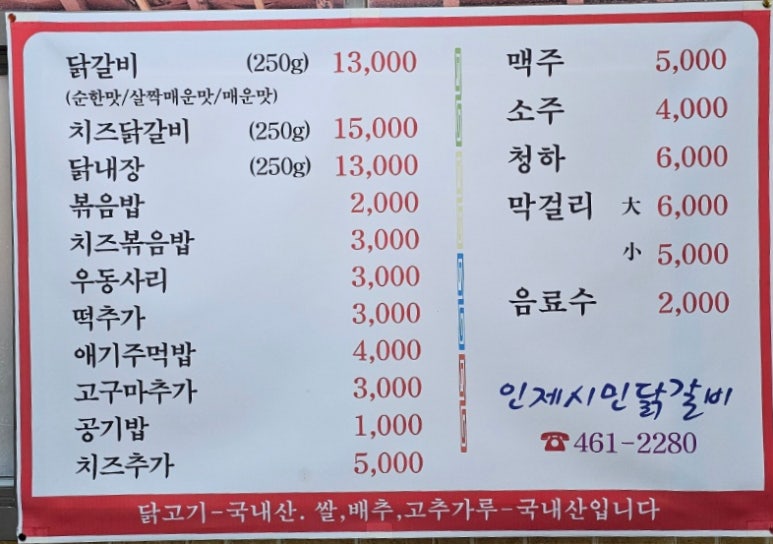 닭갈비 (250g) 13,000
(순한맛/살짝매운맛/매운맛)
치즈닭갈비 (250g) 15,000
닭내장 (250g) 13,000
볶음밥 2,000
치즈볶음밥 3,000
우동사리 3,000
떡추가 3,000
애기주먹밥 4,000
고구마추가 3,000
공기밥 1,000
치즈추가 5,000
맥주 5,000
소주 4,000
청하 6,000
막걸리 大 6,000
小 5,000
음료수 2,000
인제시민닭갈비
☎461-2280
닭고기-국내산. 쌀,배추,고추가루-국내산입니다